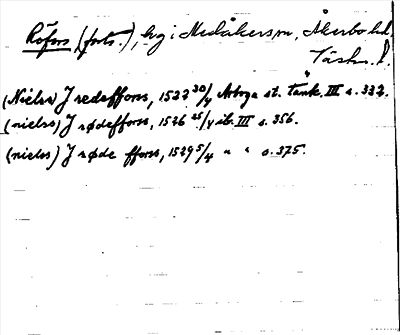 Röfors (forts.), by i Medåkers sn, Åkerbo hd,
Västm. l.
(Nielss) J redeffors, 1527 30/4 Arboga st. Tänk. III s. 332.
(nielss) J rødeffors, 1526 25/4 ib. III s. 356.
(nielss) J røde ffors, 1529 5/4 " " s. 375.